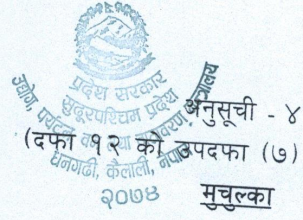 प्रदेश सरकार
सुदूरपश्चिम प्रदेश
उद्योग, पर्यटन, वन तथा वातावरण मन्त्रालय
धनगढी, कैलाली, नेपाल
२०७४
अनुसूची - ४
(दफा १२ को उपदफा (७)
मुचुल्का